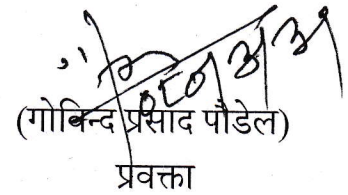 (गोबिन्द प्रसाद पौडेल)
प्रवक्ता